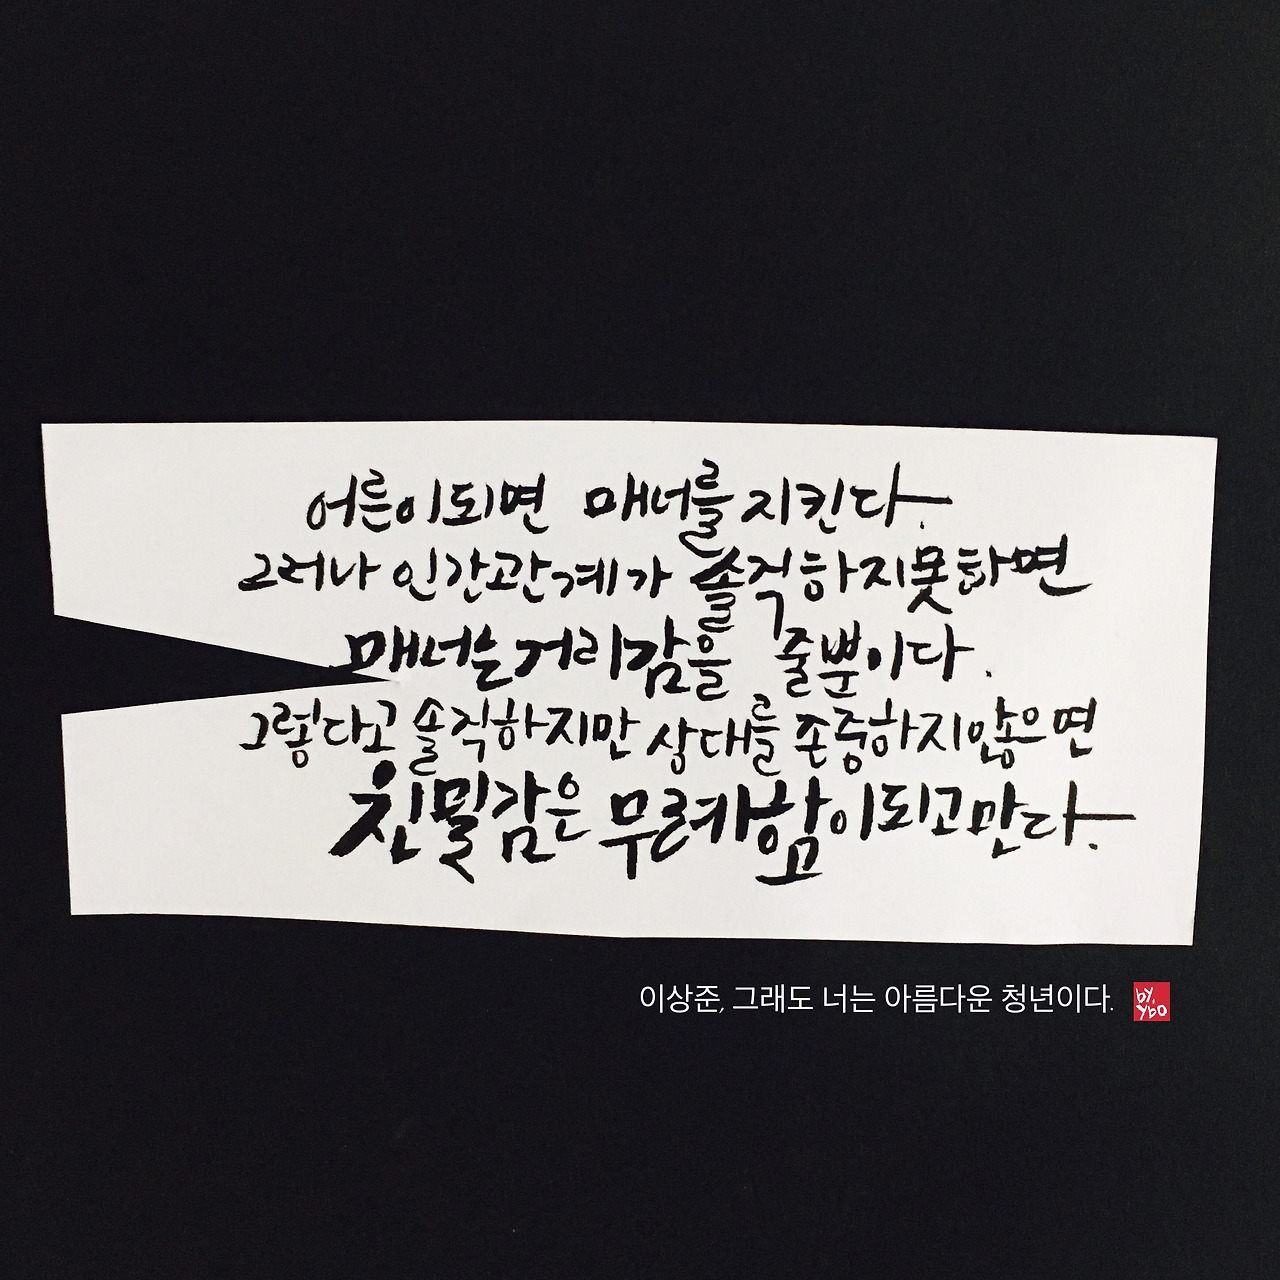 어른이되면 매너를 지킨다.
그러나 인간관계가 솔직하지못하면
매너는 거리감을 줄뿐이다.
그렇다고 솔직하지만 상대를 존중하지않으면
친밀감은 무례함이되고만다.
이상준, 그래도 너는 아름다운 청년이다.
by.
ybo